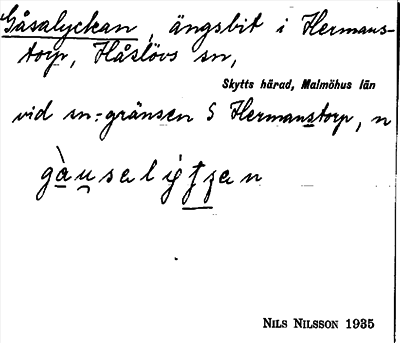 Gåsalyckan, ängsbit i Hermans-
torp, Håslövs sn,
Skytts härad, Malmöhus län
vid sn:gränsen S Hermanstorp, n
NILS NILSSON 1935